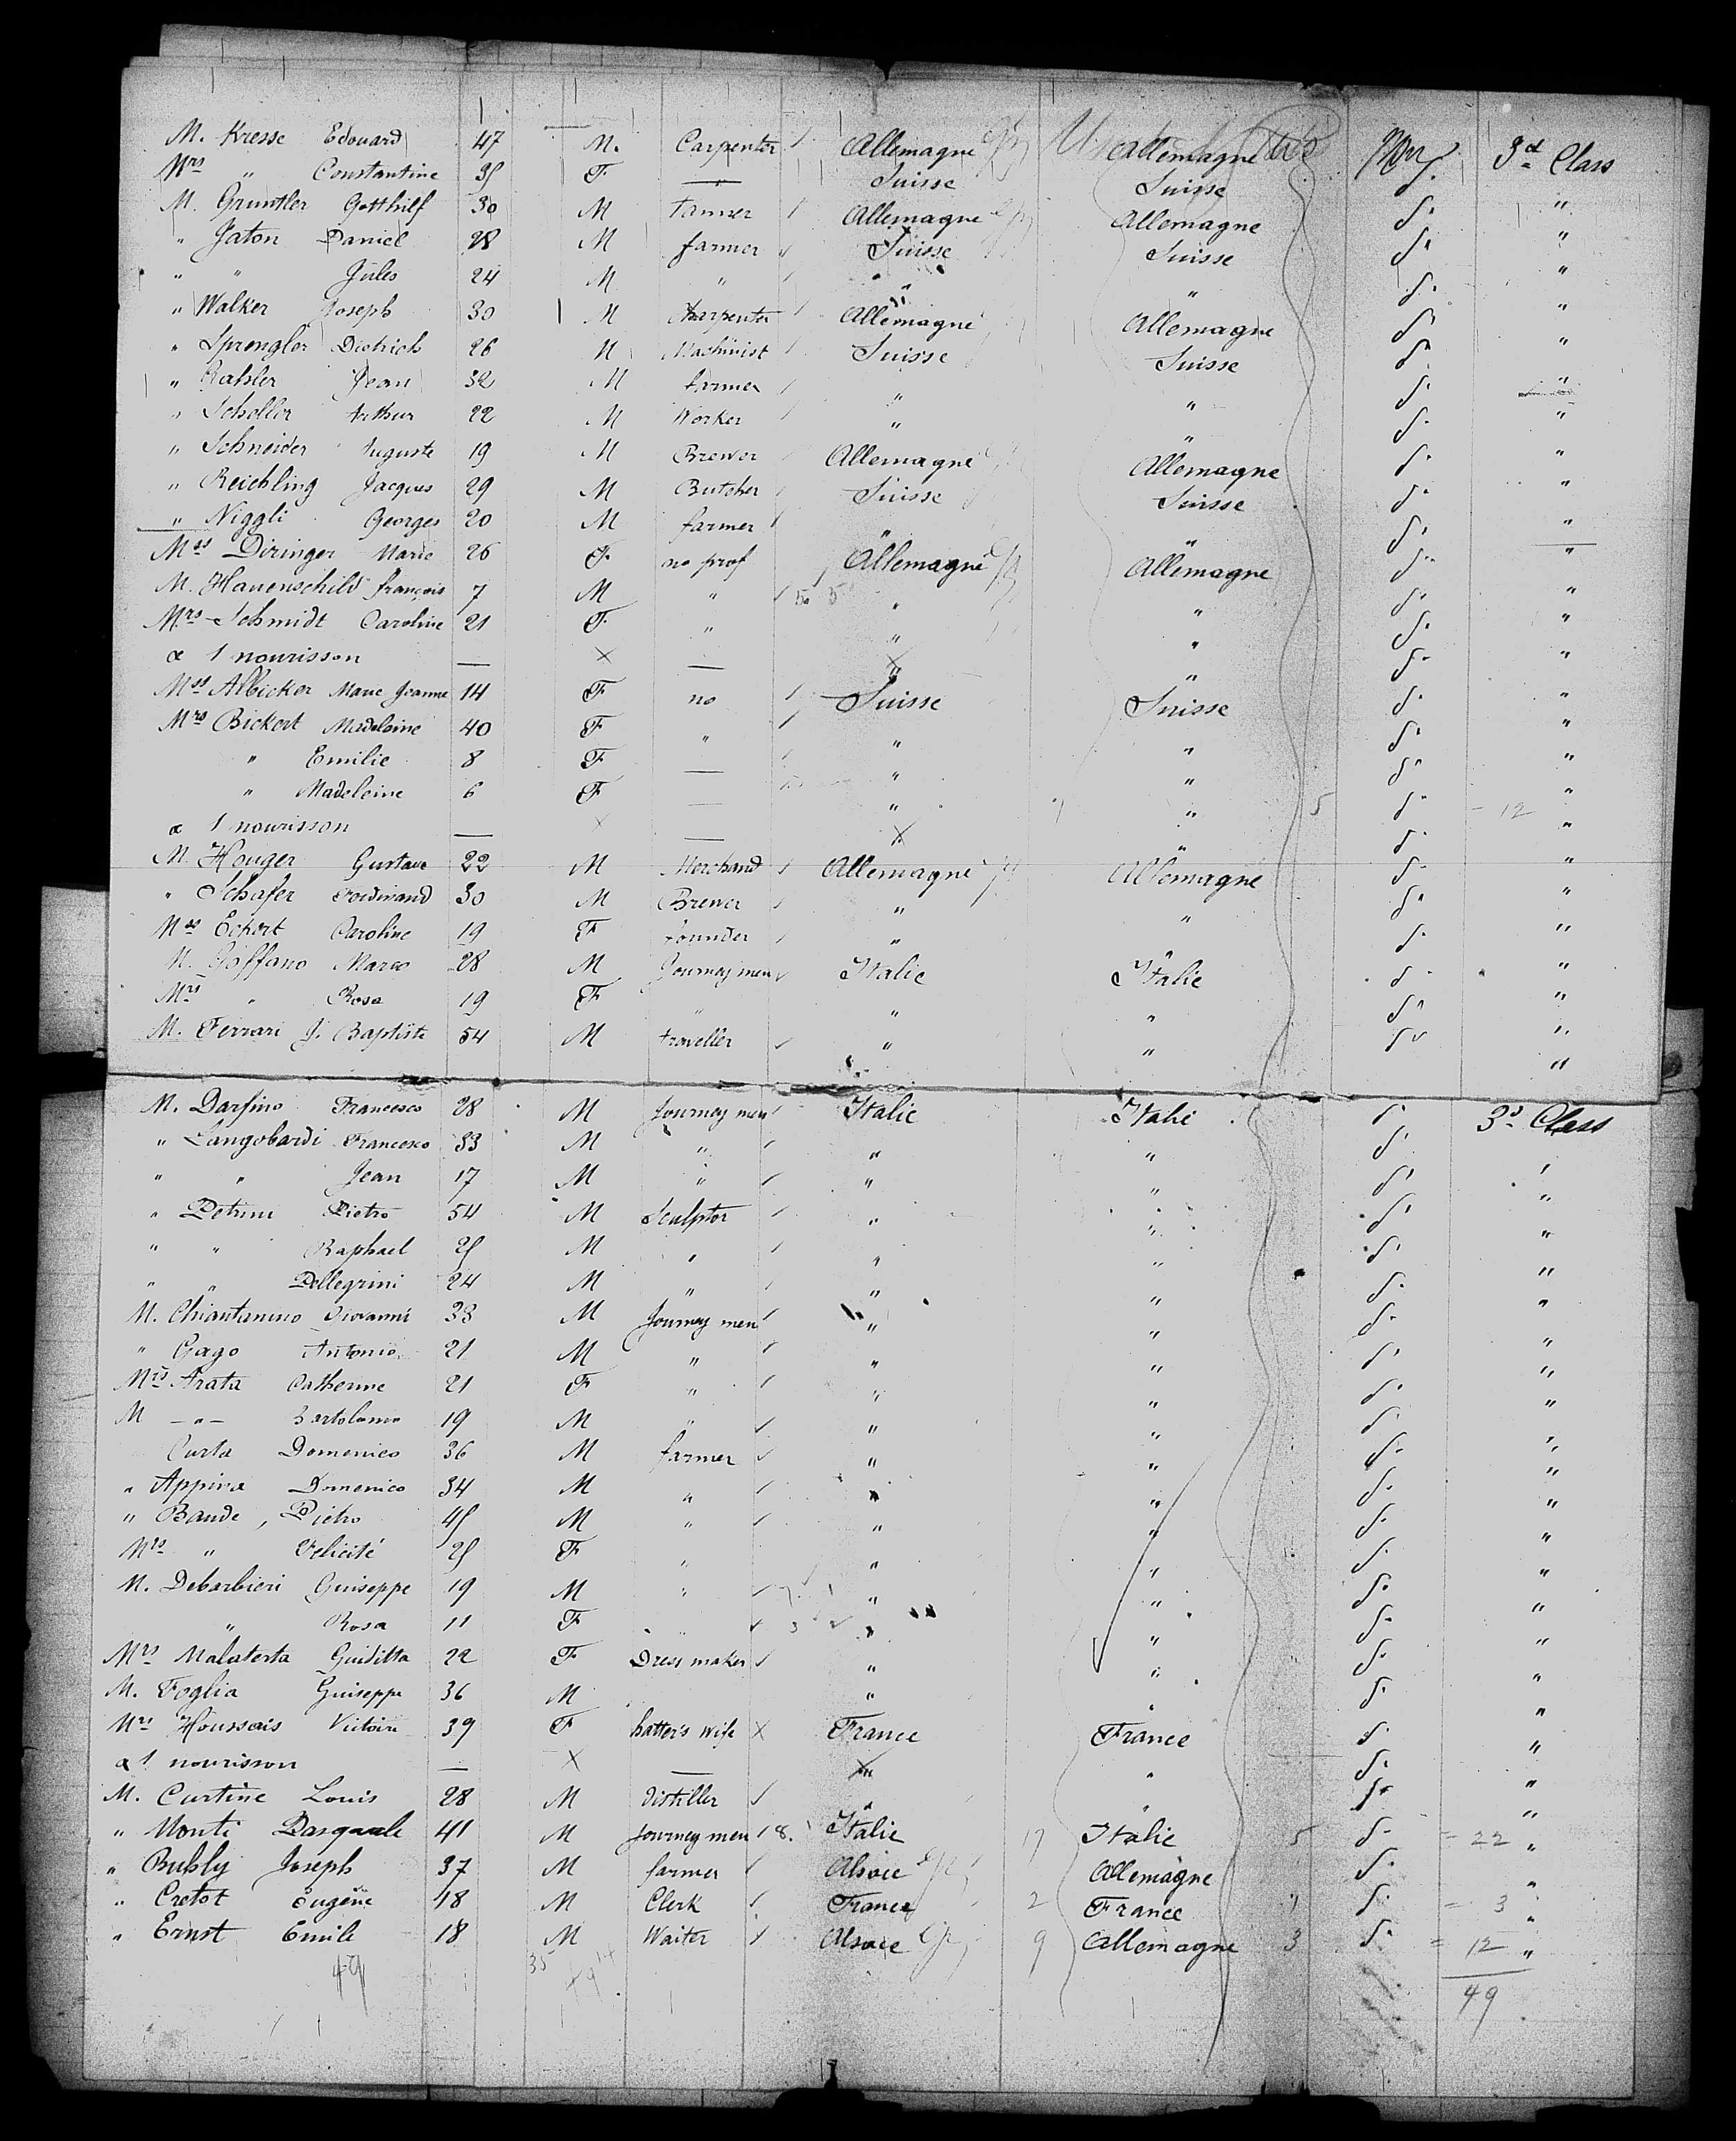 M. Kresse Edouard 47 M. Carpenter Allemagne Allemagne 3d Class
Mrs " Constantine 35 F — Suisse Suisse "
M. Gruntler Gotthilf 30 M tanner Allemagne Allemagne "
" Jaton Daniel 28 M farmer Suisse Suisse "
" " Jules 24 M " " " "
" Walker Joseph 30 M Carpenter Allemagne Allemagne "
" Sprengler Dietrich 26 M Machinist Suisse Suisse "
" Jean 32 M farmer " " "
" Scheller Arthur 22 M Worker " " "
" Schneider Auguste 19 M Brewer Allemagne Allemagne "
" Reichling Jacques 29 M Butcher Suisse Suisse "
" Niggli Georges 20 M farmer " " "
Mss Diringer Marie 26 F. no prof Allemagne Allemagne "
M. Hauenschild françois 7 M " " " "
Mrs Schmidt Caroline 21 F. " " " "
& 1 nourisson — X — " " "
Mss Albicker Marie Jeanne 14 F no Suisse Suisse "
Mrs Bickert Madeleine 40 F " " " "
" Emilie 8 F — " " "
" Madeleine 6 F — " " " 7 5 = 12
& 1 nourisson — X — " " "
M. Houger Gustave 22 M Merchand Allemagne Allemagne "
" Schafer Ferdinand 30 M Brewer " " "
Mss Eckert Caroline 19 F founder " " "
M. Goffano Marco 28 M Journey men Italie Italie "
Mrs " Rosa 19 F " " " "
M. Ferrari J. Baptiste 54 M traveller " " "
M. Darfino Francesco 28 M Journey men Italie Italie 3d Class
" Langobardi Francesco 33 M " " " "
" " Jean 17 M " " " "
" Petrini Pietro 54 M Sculptor " " "
" " Raphael 25 M " " " "
" " Pellegrini 24 M " " " "
M. Chiantanino Giovanni 33 M Journey men " " "
" Gago Antonio 21 M " " " "
Mrs Arata Catherine 21 F " " " "
M — " — Bartolomeo 19 M " " " "
Curta Domenico 36 M farmer " " "
" Appiva Domenico 34 M " " " "
" Baude, Pietro 45 M " " " "
Mrs " Felicité 25 F " " " "
M. Debarbieri Guiseppe 19 M " " " "
" Rosa 11 F " " " "
Mrs Malatesta Guiditta 22 F Dress maker " " "
M. Foglia Guiseppe 36 M " " "
Mrs Houssais Victoire 39 F hatter's wife X France France "
& 1 nourisson — X — " " "
M. Curtine Louis 28 M distiller " " "
" Monti Pasquale 41 M Journey men 18. Italie 17 Italie 5 = 22 "
" Buhly Joseph 37 M farmer Alsace Allemagne "
" Cretot Eugène 18 M Clerk France 2 France 1 = 3 "
" Ernst Emile 18 M Waiter Alsace 9 Allemagne 3 = 12 "
49 35 14 49
49